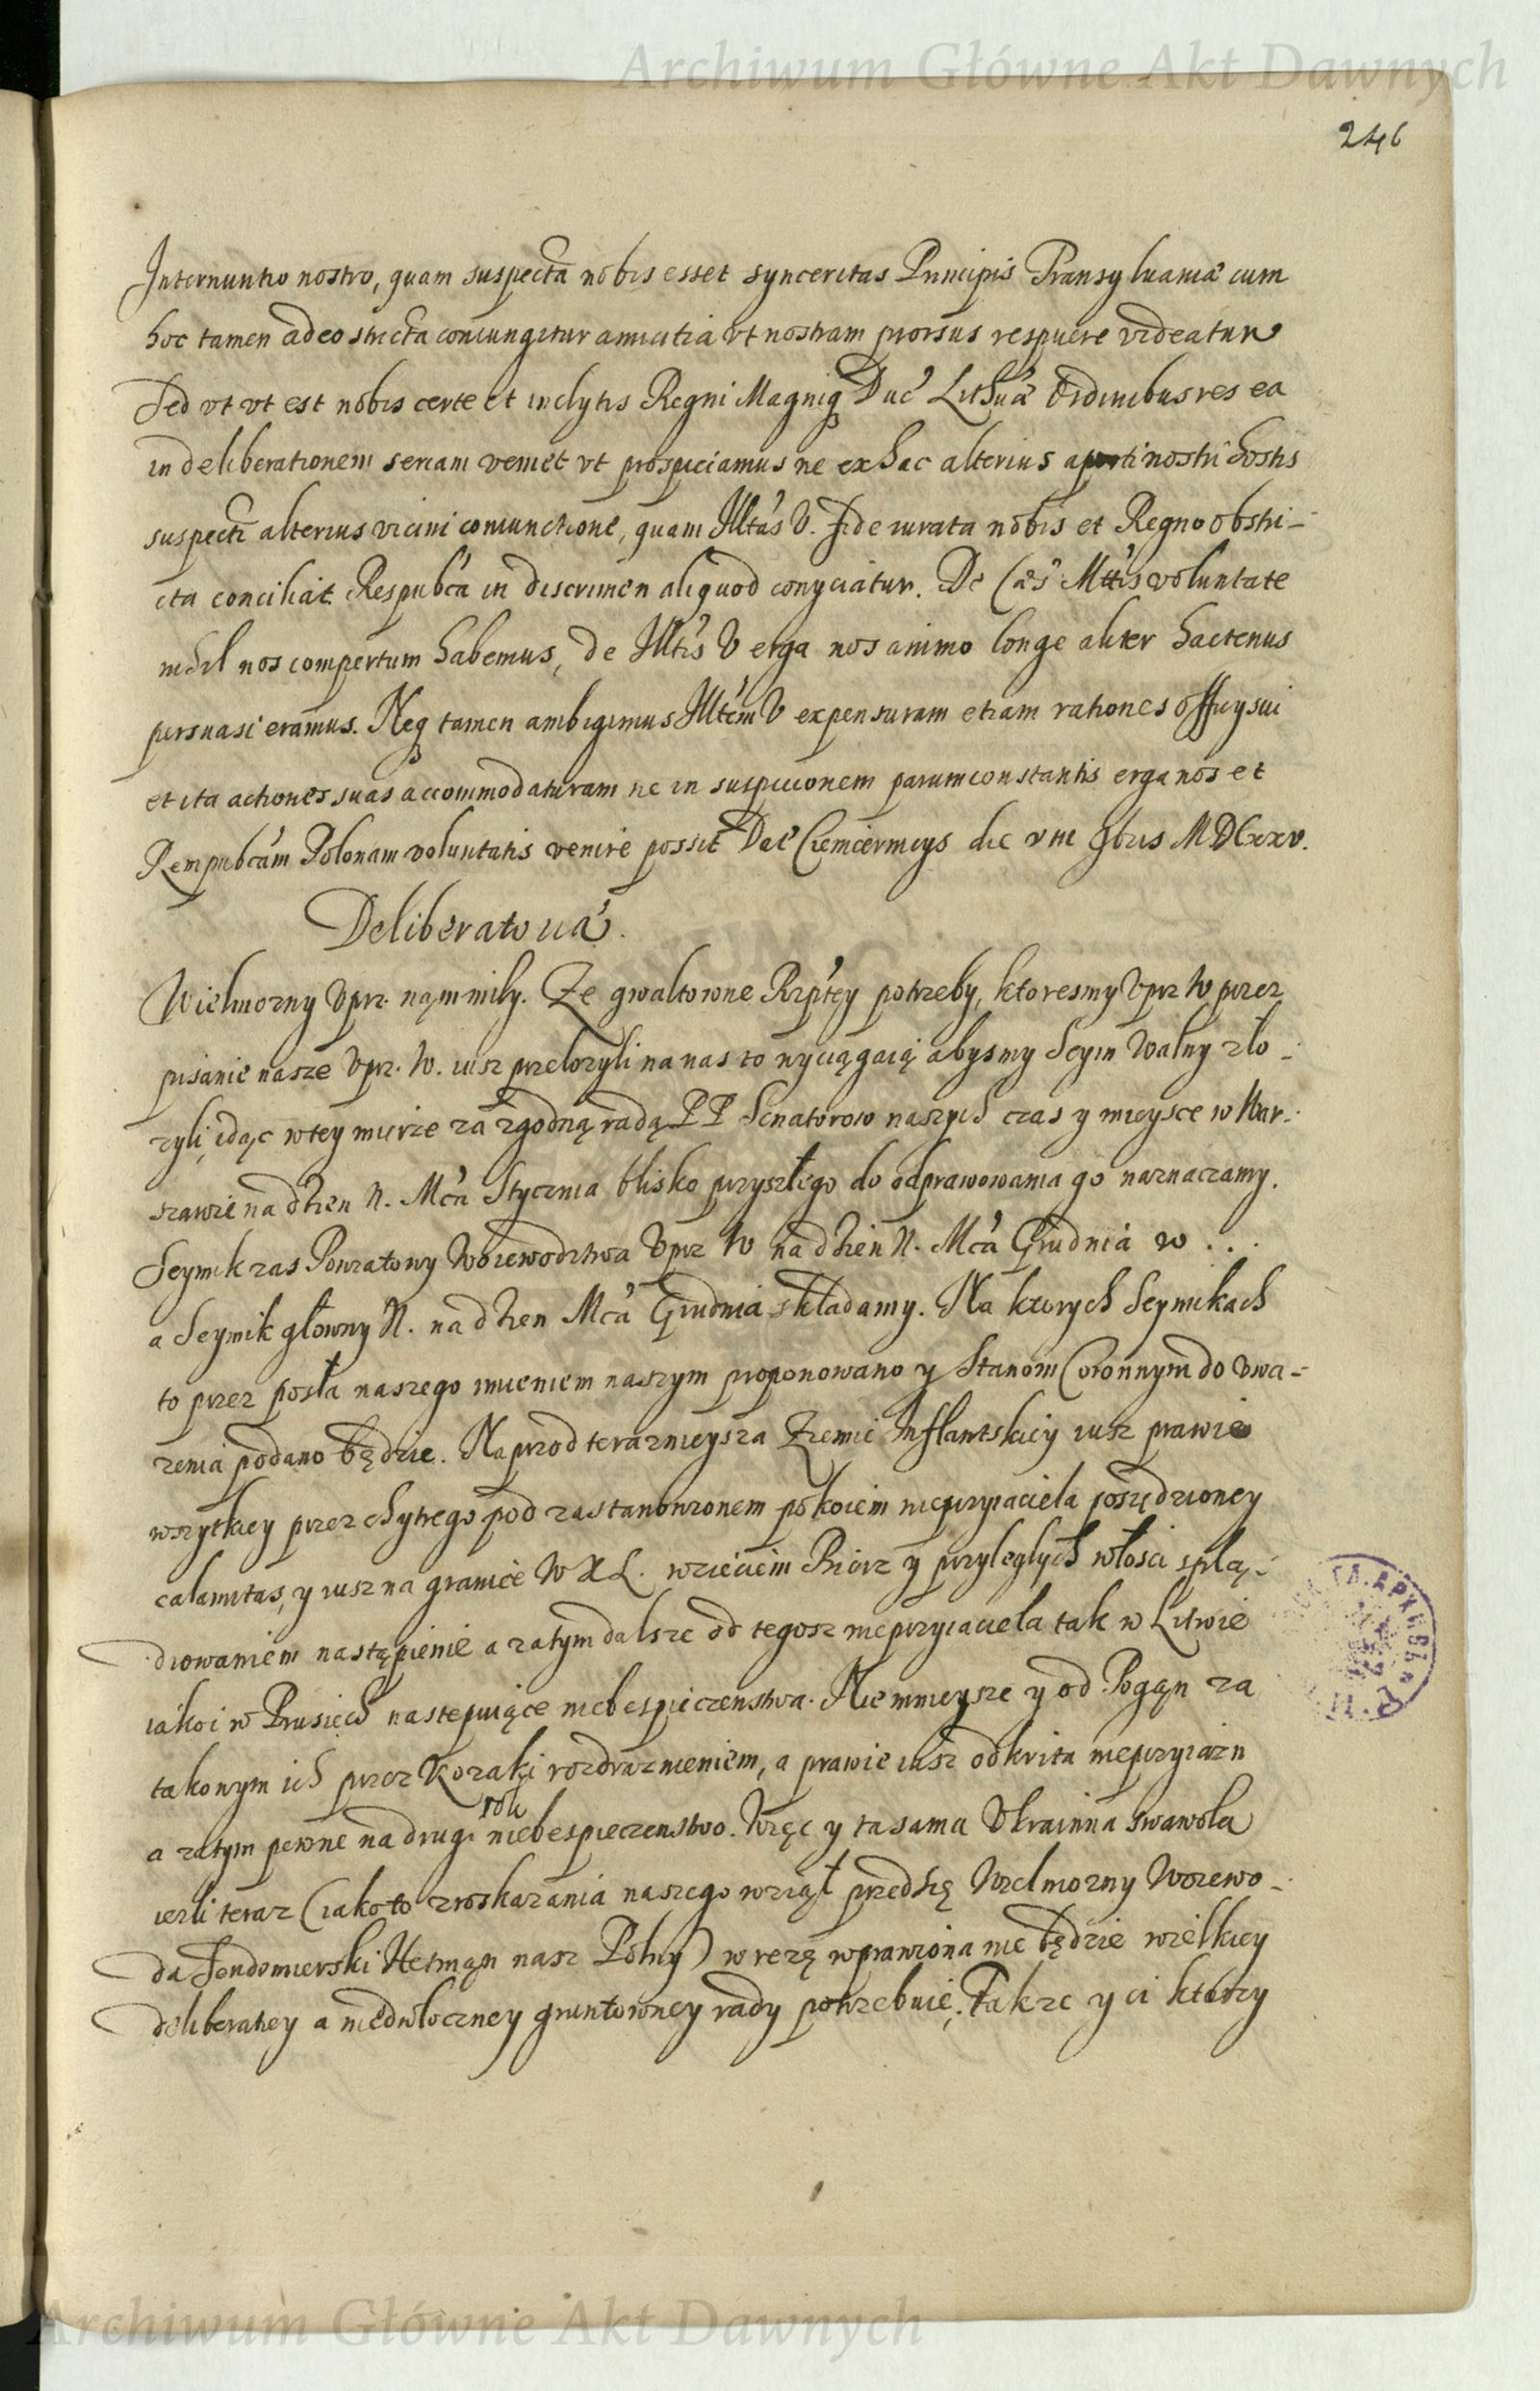 Archiwum Główne Akt Dawnych
246
Internuntio nostro, quam suspecta nobis esset synceritas Principis Transyluaniæ cum
hoc tamen adeo stricta coniungitur amicitia vt nostram prorsus respuere videatur
Sed vt vt est nobis certe et inclytis Regni Magniq Duc Lithuæ Ordinibus res ea
in deliberationem seriam veniet vt prospiciamus ne ex hac alterius aperti nostri hostis
suspecti alterius vicini coniunctione, quam Illtas V. fide iurata nobis et Regno obstri-
cta conciliat Respubca in discrimen aliquod conyciatur. De Cæs Mttis voluntate
nihil nos compertum habemus, de Illtis V erga nos animo longe aliter hactenus
persuasi eramus. Neq tamen ambigimus Illtem V expensuram etiam rationes officy sui
et ita actiones suas accommodaturam ne in suspicionem parum constantis erga nos et
Rempubcam Polonam voluntatis venire possit Dat Ciemiernicys die VIII 9bris MDCxxv.
Deliberatoria.
Wielmozny Vprz. nąm miły. Ze gwałtowne Rzptey potrzeby, ktoresmy Vprz W przez
pisanie nasze Vprz. W. iusz prełozyli na nas to wyciągaią abysmy Seym Walny zło-
zyli, idąc w tey mierze za zgodną radą PP Senatorow naszych czas y mieysce w War-
szawie na dzien N. Mca Stycznia blisko przyszłego do odprawowania go naznaczamy.
Seymik zas Powiatowy Woiewodztwa Vprz W na dzien N. Mca Grudnia w . . .
a Seymik głowny N. na dzien Mca Grudnia składamy. Na ktorych Seymikach
to przez posła naszego imieniem naszym proponowano y Stanom Coronnym do Vwa-
zenia podano będzie. Naprzod teraznieysza Ziemie Inflantskiey iusz prawie
wszytkiey przez chytrego pod zastanowionem pokoiem nieprzyiaciela posiędzioney
calamitas, y iusz na granice W X L. wzięciem Birz y przyległych włosci splą-
drowaniem nastąpienie a zatym dalsze od tegosz nieprzyiaciela tak w Litwie
iako i w Prusiech nastepuiące niebespieczenstwa. Nie mnieysze y od Pogąn za
takowym ich przez Kozaki rozdraznieniem, a prawie iusz odkrita nieprzyiazn
rok
a zatym pewne na drugi niebespieczenstwo. Więc y ta sama Vkrainna swawola
iezli teraz (iako to z roskazania naszego wziął przedsię Wielmozny Woiewo-
da Sendomierski Hetmąn nasz Polny) w rezę wprawiona nie będzie wielkiey
deliberatiey a niedwłoczney gruntowney rady potrzebuie. Takze y ci ktorzy
Archiwum Główne Akt Dawnych